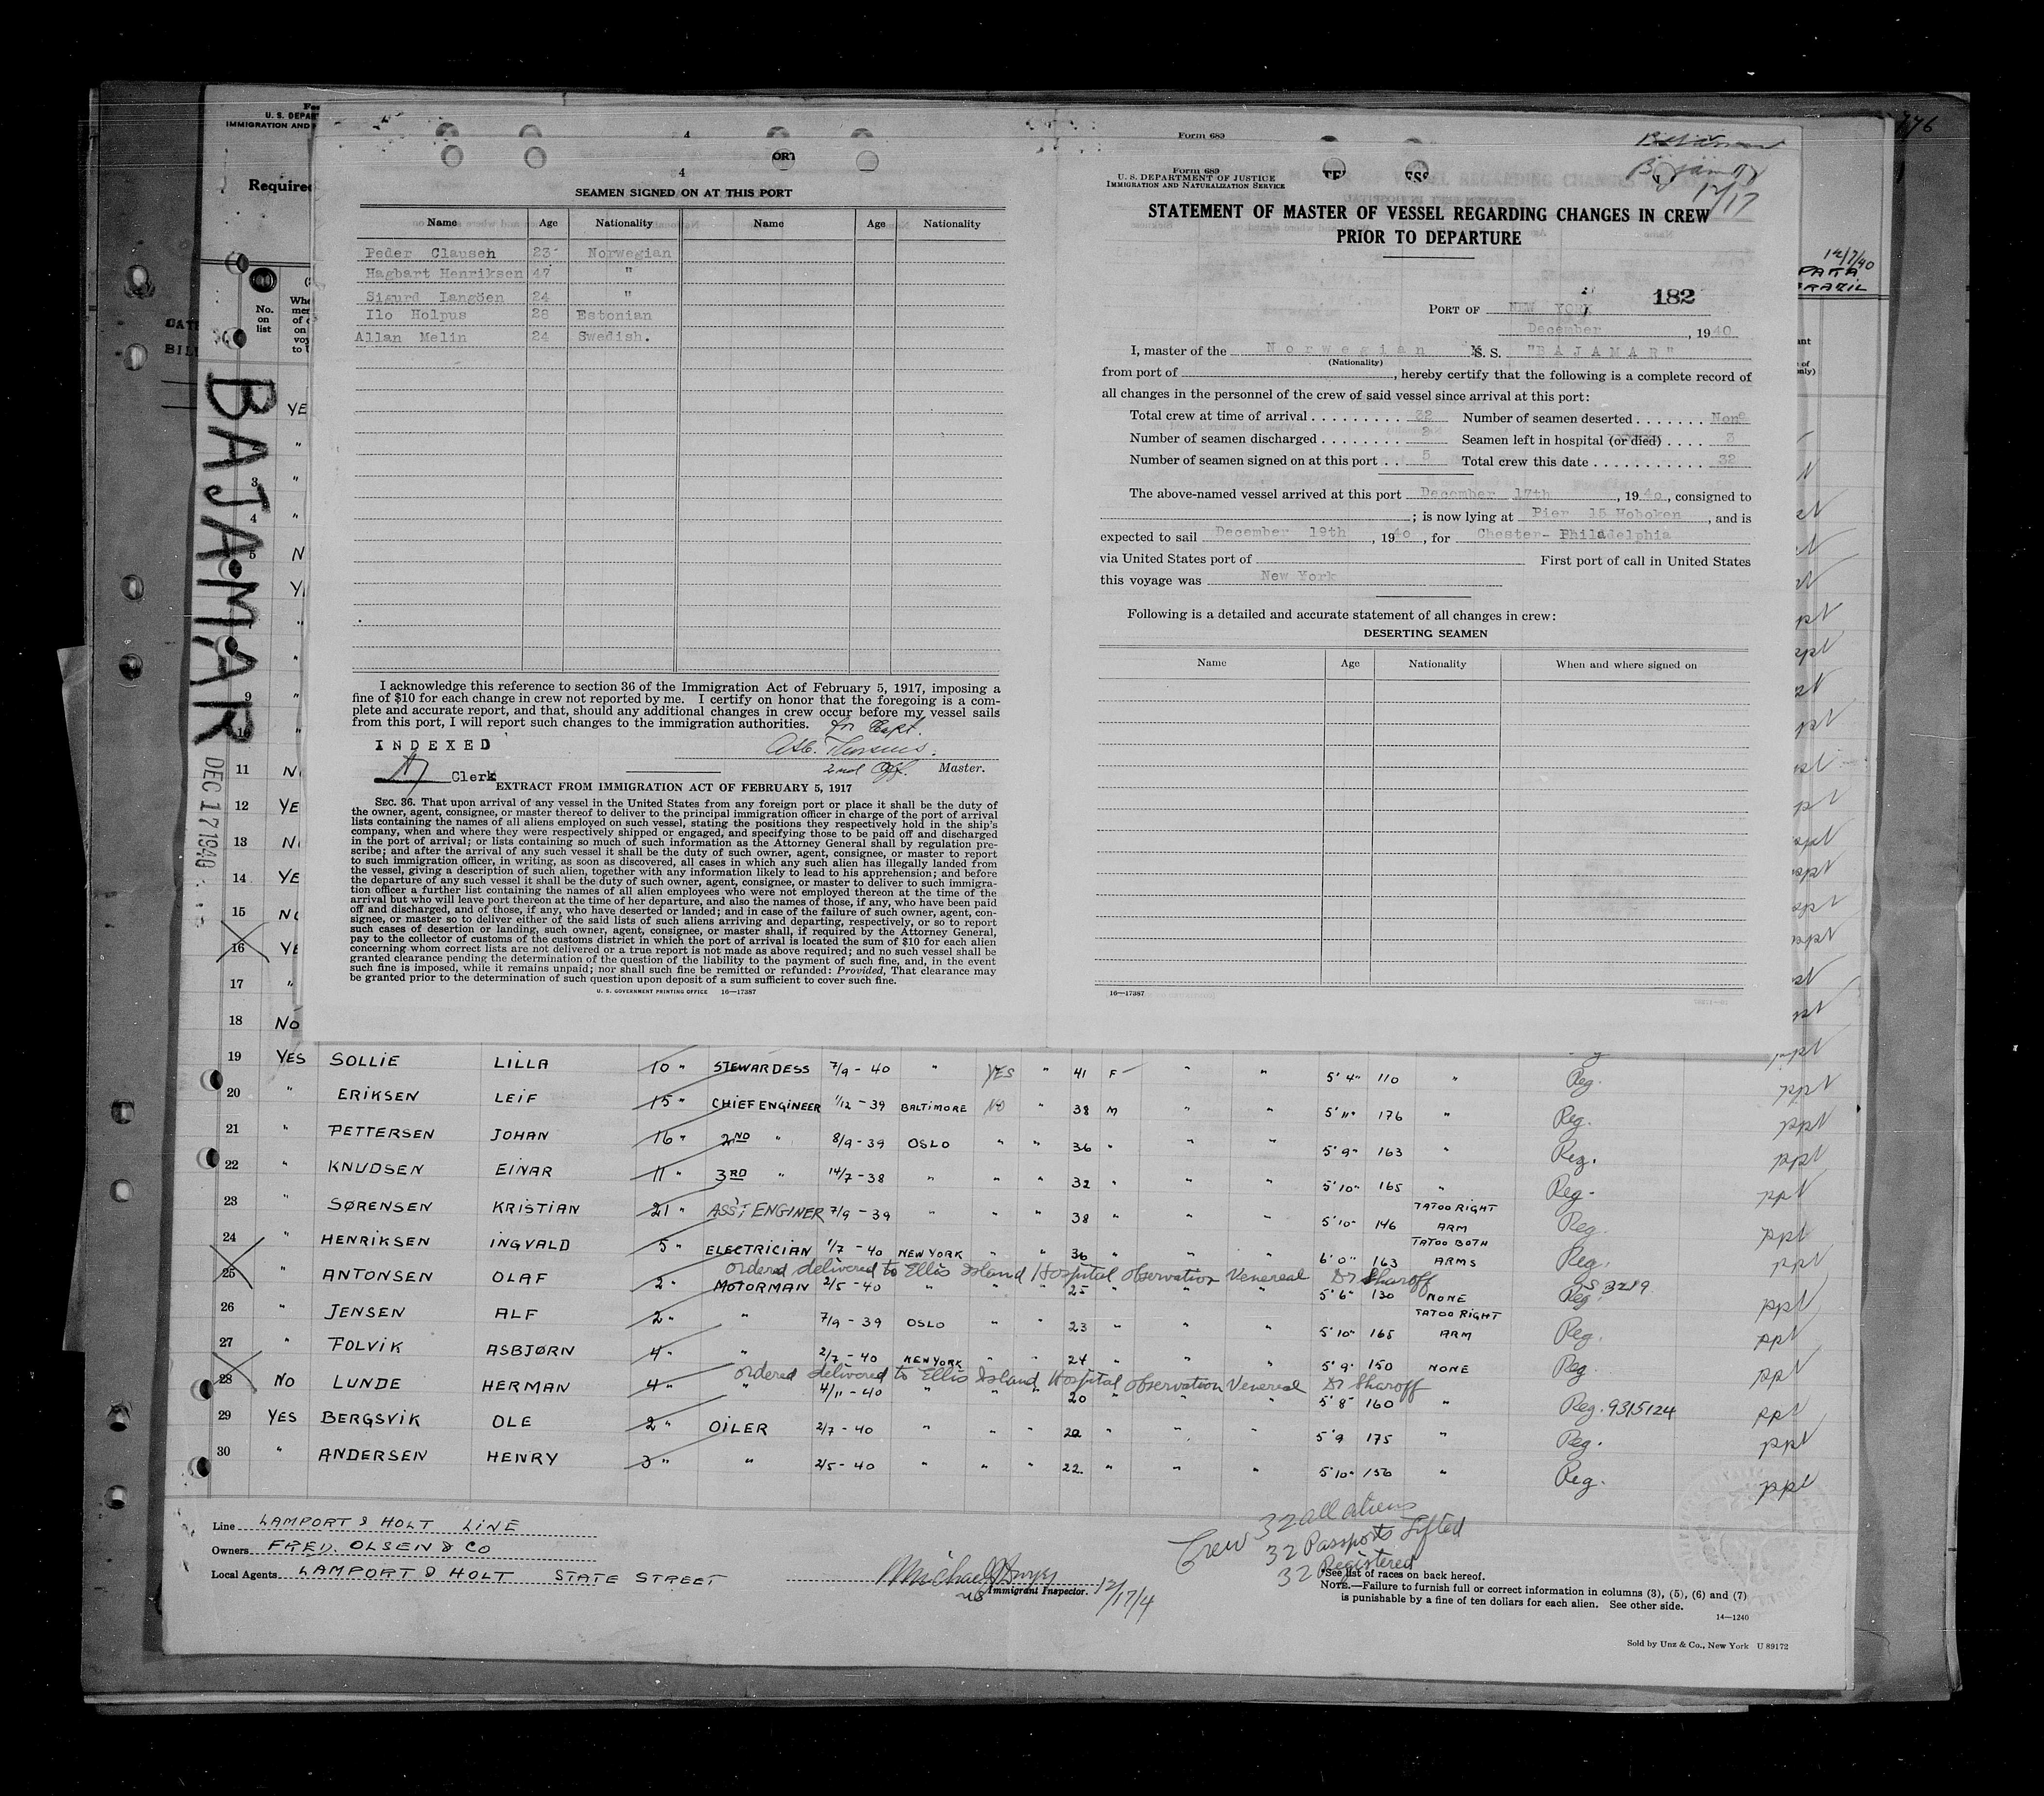 176
U. S. DEPAR
IMMIGRATION AND
Required
12/7/40
PARA
BRAZIL
No. on list
BAJAMAR
DEC 17 1940
4
ORT
4
SEAMEN SIGNED ON AT THIS PORT
Name Age Nationality Name Age Nationality
Peder Clausen 23 Norwegian
Hagbart Henriksen 47 "
Sigurd Langöen 24 "
Ilo Holpus 28 Estonian
Allan Melin 24 Swedish.
I acknowledge this reference to section 36 of the Immigration Act of February 5, 1917, imposing a
fine of $10 for each change in crew not reported by me. I certify on honor that the foregoing is a com-
plete and accurate report, and that, should any additional changes in crew occur before my vessel sails
from this port, I will report such changes to the immigration authorities.
for Capt.
INDEXED
2nd Off. Master.
Clerk
EXTRACT FROM IMMIGRATION ACT OF FEBRUARY 5, 1917
SEC. 36. That upon arrival of any vessel in the United States from any foreign port or place it shall be the duty of
the owner, agent, consignee, or master thereof to deliver to the principal immigration officer in charge of the port of arrival
lists containing the names of all aliens employed on such vessel, stating the positions they respectively hold in the ship's
company, when and where they were respectively shipped or engaged, and specifying those to be paid off and discharged
in the port of arrival; or lists containing so much of such information as the Attorney General shall by regulation pre-
scribe; and after the arrival of any such vessel it shall be the duty of such owner, agent, consignee, or master to report
to such immigration officer, in writing, as soon as discovered, all cases in which any such alien has illegally landed from
the vessel, giving a description of such alien, together with any information likely to lead to his apprehension; and before
the departure of any such vessel it shall be the duty of such owner, agent, consignee, or master to deliver to such immigra-
tion officer a further list containing the names of all alien employees who were not employed thereon at the time of the
arrival but who will leave port thereon at the time of her departure, and also the names of those, if any, who have been paid
off and discharged, and of those, if any, who have deserted or landed; and in case of the failure of such owner, agent, con-
signee, or master so to deliver either of the said lists of such aliens arriving and departing, respectively, or so to report
such cases of desertion or landing, such owner, agent, consignee, or master shall, if required by the Attorney General,
pay to the collector of customs of the customs district in which the port of arrival is located the sum of $10 for each alien
concerning whom correct lists are not delivered or a true report is not made as above required; and no such vessel shall be
granted clearance pending the determination of the question of the liability to the payment of such fine, and, in the event
such fine is imposed, while it remains unpaid; nor shall such fine be remitted or refunded: Provided, That clearance may
be granted prior to the determination of such question upon deposit of a sum sufficient to cover such fine.
U. S. GOVERNMENT PRINTING OFFICE 16—17387
Form 689
Form 689
U. S. DEPARTMENT OF JUSTICE
IMMIGRATION AND NATURALIZATION SERVICE
12/17
STATEMENT OF MASTER OF VESSEL REGARDING CHANGES IN CREW
PRIOR TO DEPARTURE
182
PORT OF NEW YORK
December, 1940
I, master of the Norwegian M. S. "BAJAMAR"
(Nationality)
from port of , hereby certify that the following is a complete record of
all changes in the personnel of the crew of said vessel since arrival at this port:
Total crew at time of arrival 32 Number of seamen deserted None
Number of seamen discharged 2 Seamen left in hospital (or died) 3
Number of seamen signed on at this port 5 Total crew this date 32
The above-named vessel arrived at this port December 17th, 1940, consigned to
; is now lying at Pier 15 Hoboken, and is
expected to sail December 19th, 1940, for Chester- Philadelphia
via United States port of First port of call in United States
this voyage was New York
Following is a detailed and accurate statement of all changes in crew:
DESERTING SEAMEN
Name Age Nationality When and where signed on
16—17387
9 "
11 N
12 YE
13 N
14 YE
15 NO
16 YE
17 "
18 NO
19 YES SOLLIE LILLA 10 " STEWARDESS 7/9 - 40 " YES " 41 F " " 5' 4" 110 " Reg. ppt
20 " ERIKSEN LEIF 15 " CHIEF ENGINEER 1/12 - 39 BALTIMORE NO " 38 M " " 5' 11" 176 " Reg. ppt
21 " PETTERSEN JOHAN 16 " 2ND " 8/9 - 39 OSLO " " 36 " " " 5' 9" 163 " Reg. ppt
22 " KNUDSEN EINAR 11 " 3RD " 14/7 - 38 " " " 32 " " " 5' 10" 165 " Reg. ppt
23 " SØRENSEN KRISTIAN 21 " ASS'T ENGINER 7/9 - 39 " " " 38 " " " 5' 10" 146 TATOO RIGHT ARM Reg. ppt
24 " HENRIKSEN INGVALD 5 " ELECTRICIAN 1/7 - 40 NEW YORK " " 36 " " " 6' 0" 163 TATOO BOTH ARMS Reg. ppt
ordered delivered to Ellis Island Hospital observation Venereal Dr Sharoff
25 " ANTONSEN OLAF 2 " MOTORMAN 2/5 - 40 " " " 25 " " " 5' 6" 130 NONE Reg. ppt
26 " JENSEN ALF 2 " " 7/9 - 39 OSLO " " 23 " " " 5' 10" 165 TATOO RIGHT ARM Reg. ppt
27 " FOLVIK ASBJØRN 4 " " 2/7 - 40 NEW YORK " " 24 " " " 5' 9" 150 NONE Reg ppt
ordered delivered to Ellis Island Hospital observation Venereal Dr Sharoff
28 NO LUNDE HERMAN 4 " " 4/11 - 40 " " " 20 " " " 5' 8" 160 " Reg. 9315124 ppt
29 YES BERGSVIK OLE 2 " OILER 2/7 - 40 " " " 22 " " " 5' 9 175 " Reg. ppt
30 " ANDERSEN HENRY 3 " " 2/5 - 40 " " " 22 " " " 5' 10" 150 " Reg. ppt
Line LAMPORT & HOLT LINE
Owners FRED. OLSEN & CO
Local Agents LAMPORT & HOLT STATE STREET
Immigrant Inspector.
12/17/4
Crew 32 all aliens
32 Passports Lifted
32 Registered
See list of races on back hereof.
NOTE.—Failure to furnish full or correct information in columns (3), (5), (6) and (7)
is punishable by a fine of ten dollars for each alien. See other side.
14—1240
Sold by Unz & Co., New York U 89172